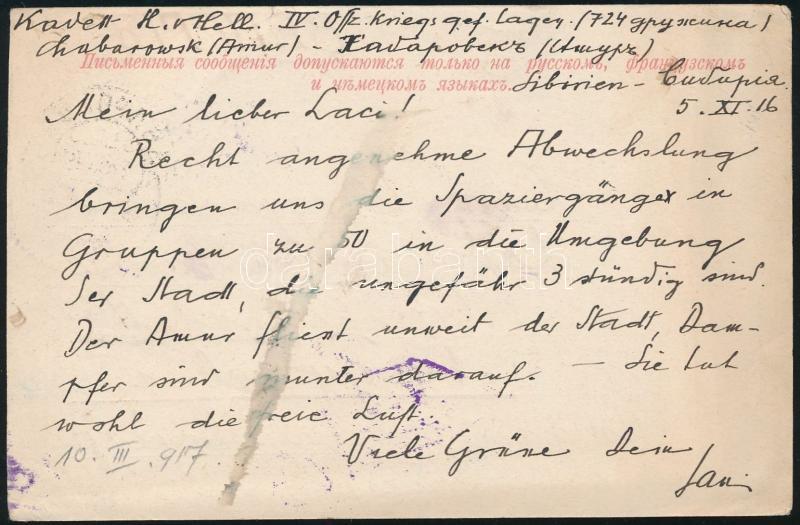 Kadett H. v. Hell. IV. Offz. Kriegsgef. Lager. (724 дружина)
Chabarowsk (Amur) – Хабаровскъ (Амуръ)
Письменныя сообщенія допускаются только на русскомъ, французскомъ
и нѣмецкомъ языкахъ.
Sibirien – Сибирія.
5. XI. 16
Mein lieber Laci!
Recht angenehme Abwechslung
bringen uns die Spaziergänge in
Gruppen zu 50 in die Umgebung
der Stadt, die ungefähr 3 stündig sind.
Der Amur fliesst unweit der Stadt, Dam-
pfer sind munter darauf. – Sie tut
wohl die freie Luft.
Viele Grüsse Dein
10. III. 917.
darabanth